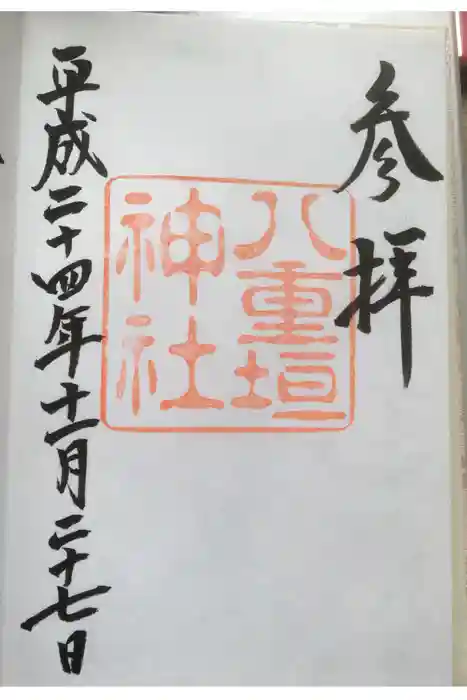 参拝
八重垣
神社
平成二十四年十一月二十七日